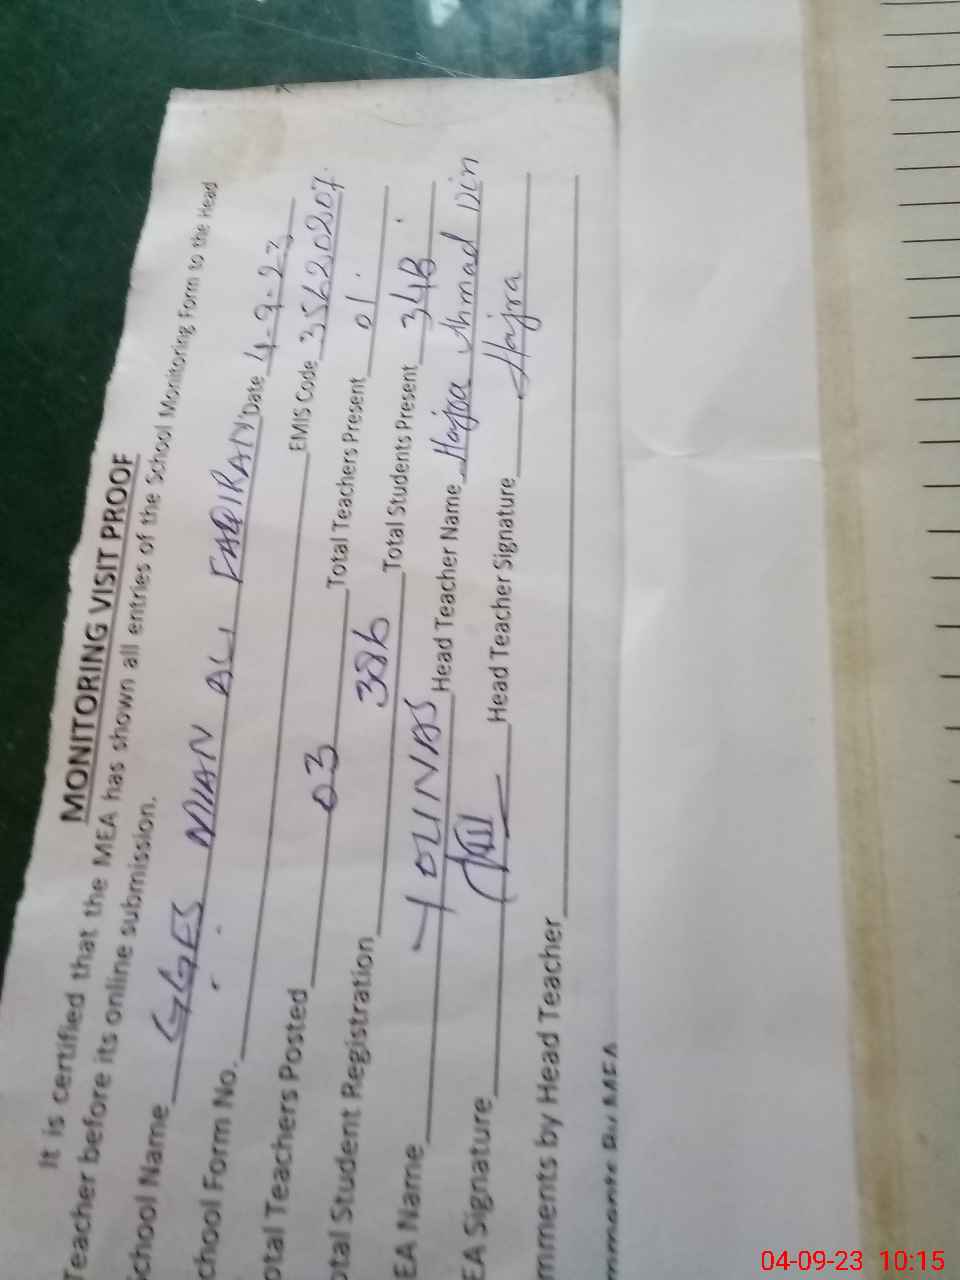 MONITORING VISIT PROOF
It is certified that the MEA has shown all entries of the School Monitoring Form to the Head
Teacher before its online submission.
School Name GGES MIAN ALI FAQIRAN Date 4-9-23
chool Form No. EMIS Code 35620207
otal Teachers Posted 03 Total Teachers Present 01
otal Student Registration 386 Total Students Present 348
EA Name YOUNAS Head Teacher Name Hajra Ahmad Din
EA Signature Head Teacher Signature Hajra
mments by Head Teacher
By MEA
04-09-23 10:15